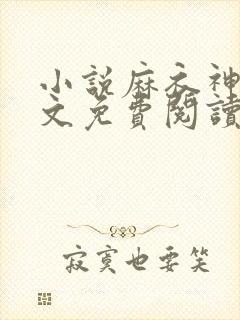 小説麻衣神
文免費閱讀
寂寞也要笑